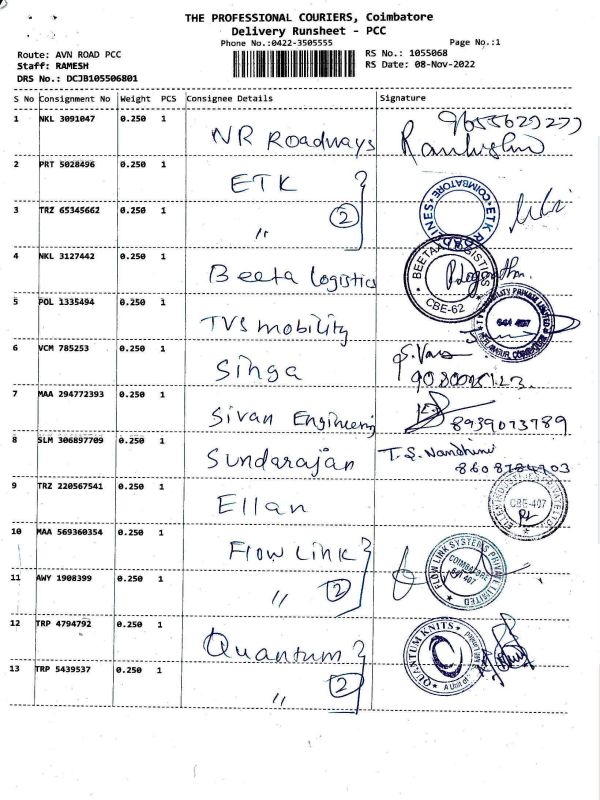 THE PROFESSIONAL COURIERS, Coimbatore
Delivery Runsheet - PCC
Phone No.:0422-3505555
Page No.:1
Route: AVN ROAD PCC
RS No.: 1055068
Staff: RAMESH
RS Date: 08-Nov-2022
DRS No.: DCJB105506801
S No Consignment No Weight PCS Consignee Details Signature
1 NKL 3091047 0.250 1 NR Roadways
2 PRT 5028496 0.250 1 ETK
3 TRZ 65345662 0.250 1 " 2
ETK ROADLINES COIMBATORE
4 NKL 3127442 0.250 1 Beeta logistics
BEETAA LOGISTICS CBE-62
5 POL 1335494 0.250 1 TVS mobility
6 VCM 785253 0.250 1 Singa S. Vasa
7 MAA 294772393 0.250 1 Sivan Engineering 8939073789
8 SLM 306897709 0.250 1 Sundarajan T. S. Nandhini
9 TRZ 220567541 0.250 1 Ellan
CBE-407
10 MAA 569360354 0.250 1 Flow Link
11 AWY 1908399 0.250 1 " 2
FLOW LINK SYSTEMS PRIVATE LIMITED COIMBATORE 641 407
12 TRP 4794792 0.250 1 Quantum
13 TRP 5439537 0.250 1 " 2
QUANTUM KNITS A Unit of